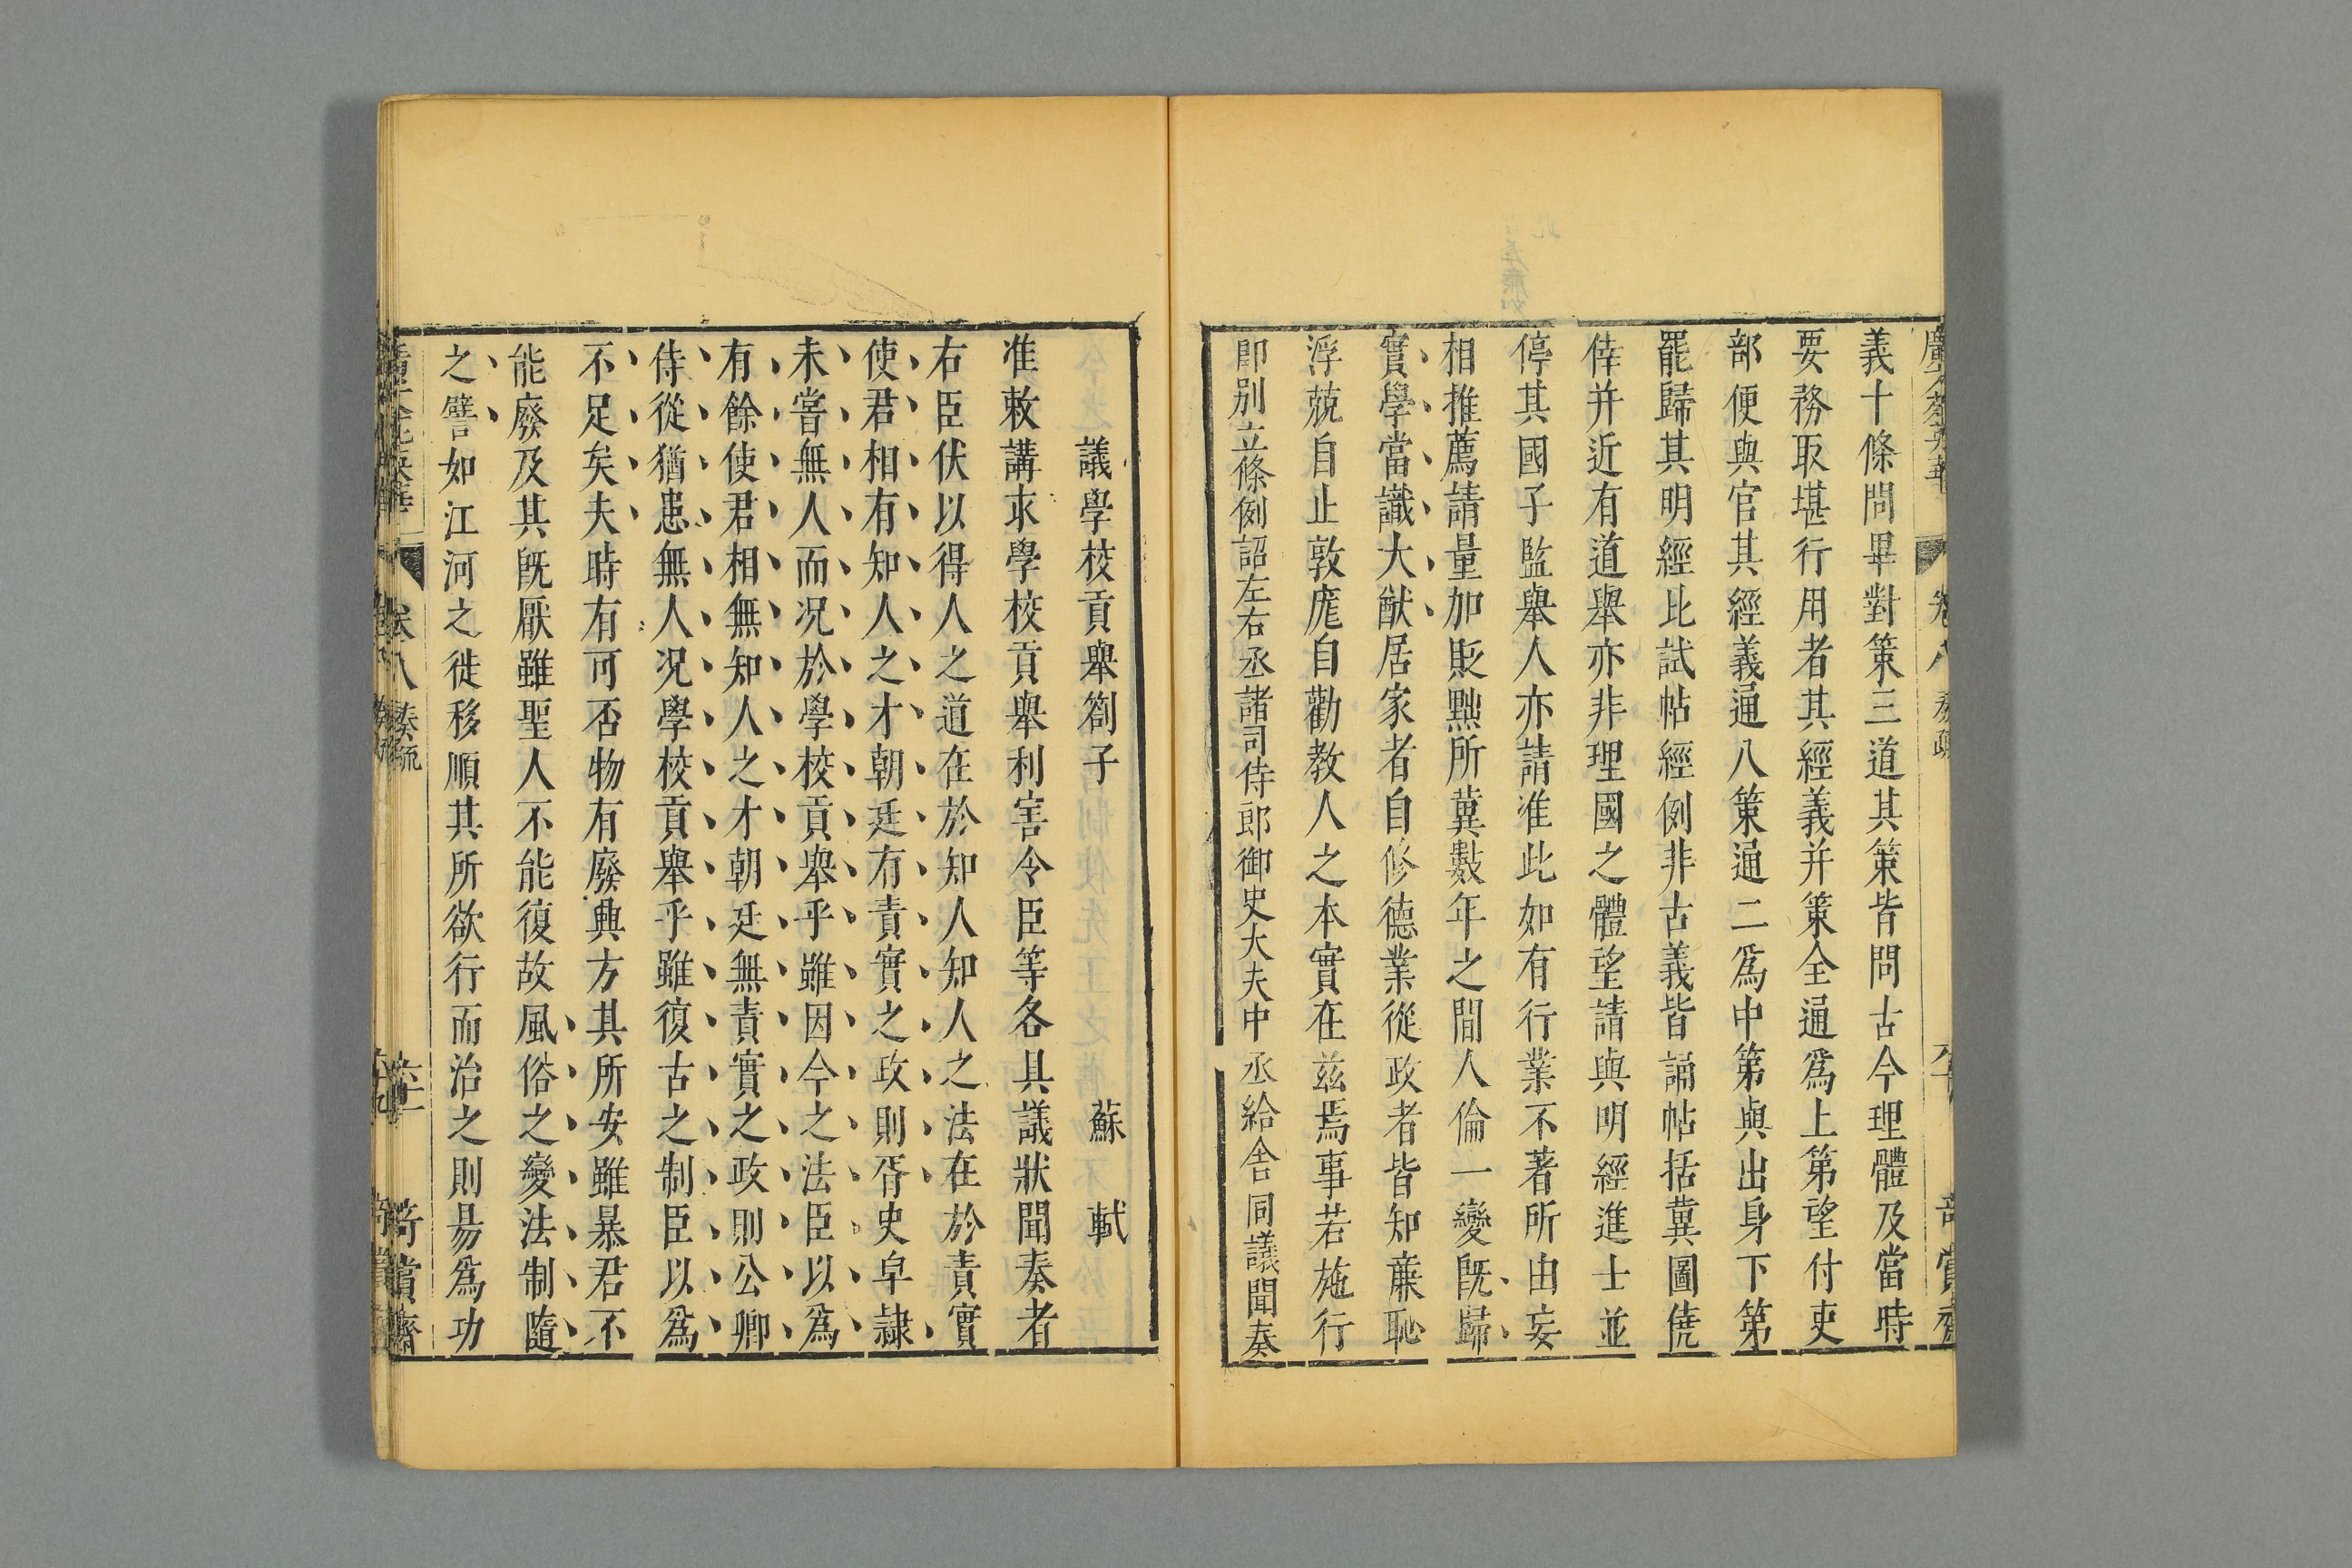 義十條問畢對策三道其策皆問古今理體及當時
要務取堪行用者其經義并策全通爲上第望付吏
部便與官其經義通八策通二爲中第與出身下第
罷歸其明經比試帖經例非古義皆誦帖括冀圖僥
倖并近有道舉亦非理國之體望請與明經進士並
停其國子監舉人亦請准此如有行業不著所由妄
相推薦請量加貶黜所冀數年之間人倫一變旣歸
實學當識大猷居家者自修德業從政者皆知亷恥
浮兢自止敦龎自勸教人之本實在兹焉事若施行
即别立條例詔左右丞諸司侍郎御史大夫中丞給舍同議聞奏
議學校貢舉劄子 蘇軾
准敕講求學校貢舉利害令臣等各具議狀聞奏者
右臣伏以得人之道在於知人知人之法在於責實
使君相有知人之才朝廷有責實之政則胥史皁隷
未嘗無人而况於學校貢舉乎雖因今之法臣以爲
有餘使君相無知人之才朝廷無責實之政則公卿
侍從猶患無人况學校貢舉乎雖復古之制臣以爲
不足矣夫時有可否物有廢典方其所安雖暴君不
能廢及其旣厭雖聖人不能復故風俗之變法制隨
之譬如江河之徙移順其所欲行而治之則昜爲功
卷八 奏疏